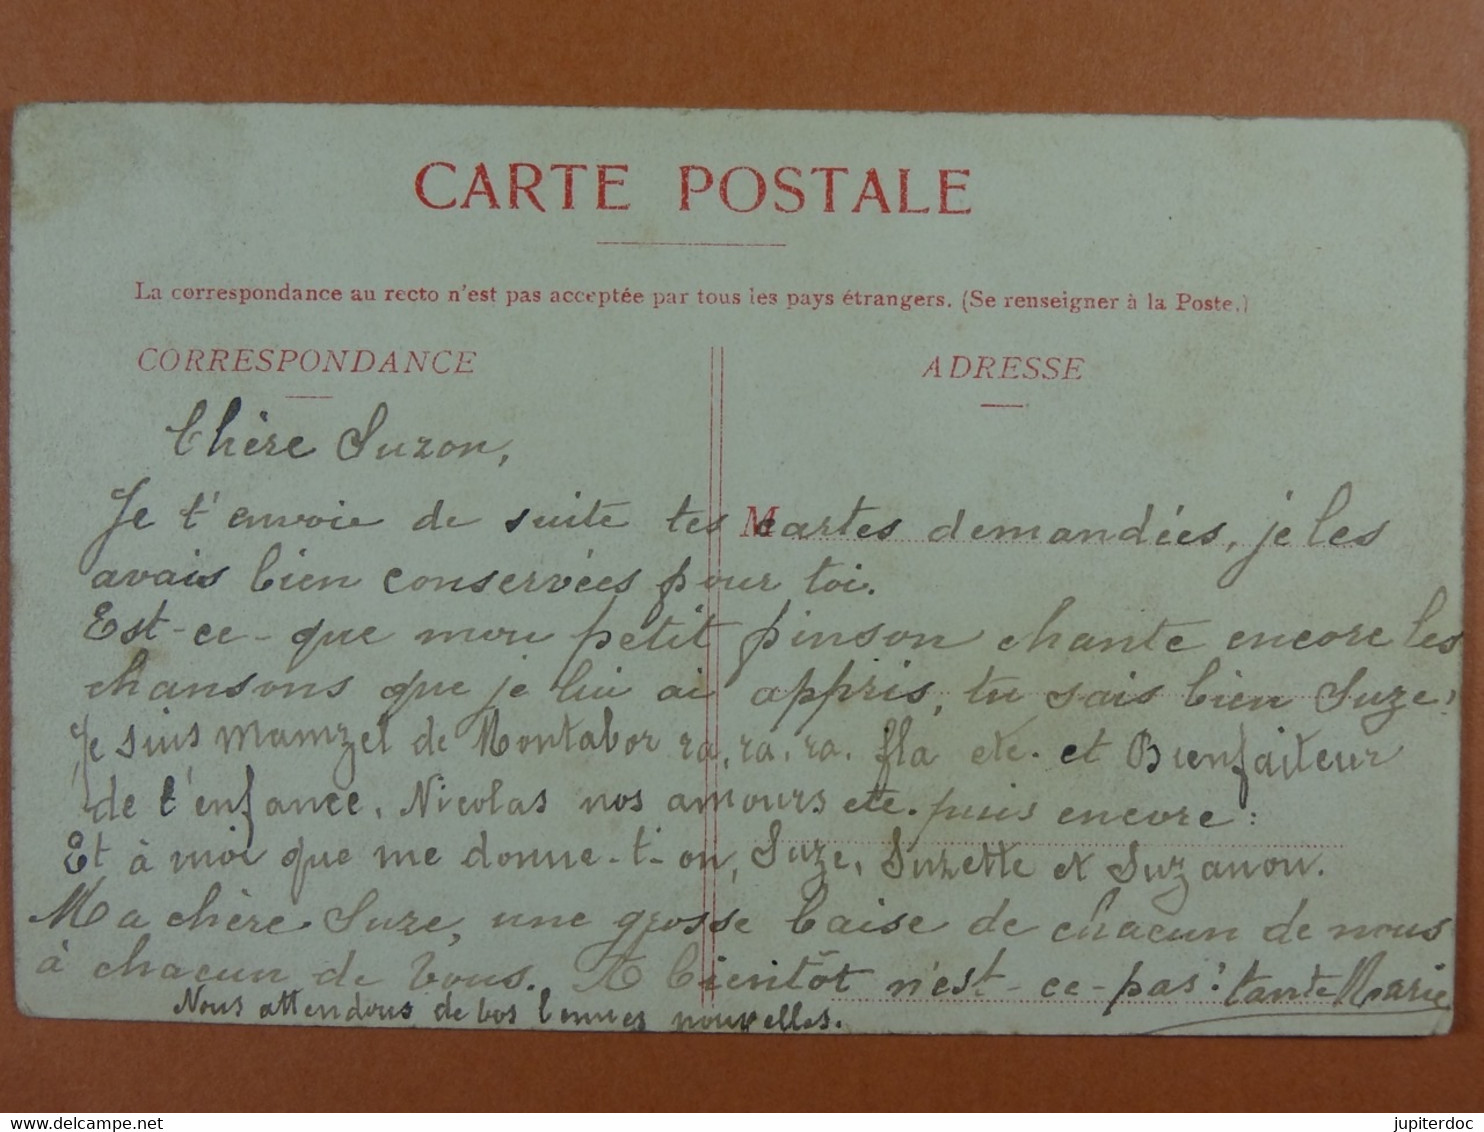 CARTE POSTALE
La correspondance au recto n'est pas acceptée par tous les pays étrangers. (Se renseigner à la Poste.)
CORRESPONDANCE
ADRESSE
M
Chère Suzon,
Je t'envoie de suite tes cartes demandées, je les
avais bien conservées pour toi.
Est-ce-que mon petit pinson chante encore les
chansons que je lui ai appris, tu sais bien Suze!
Je suis Mamzel de Montabor ra, ra, ra. fla etc. et Bienfaiteur
de l'enfance. Nicolas nos amours etc. puis encore:
Et à moi que me donne-t-on, Suze, Suzette et Suzanon.
Ma chère Suze, une grosse baise de chacun de nous
à chacun de vous. A bientôt n'est-ce-pas! tante Marie
Nous attendons de vos bonnes nouvelles.
delcampe.net
jupiterdoc